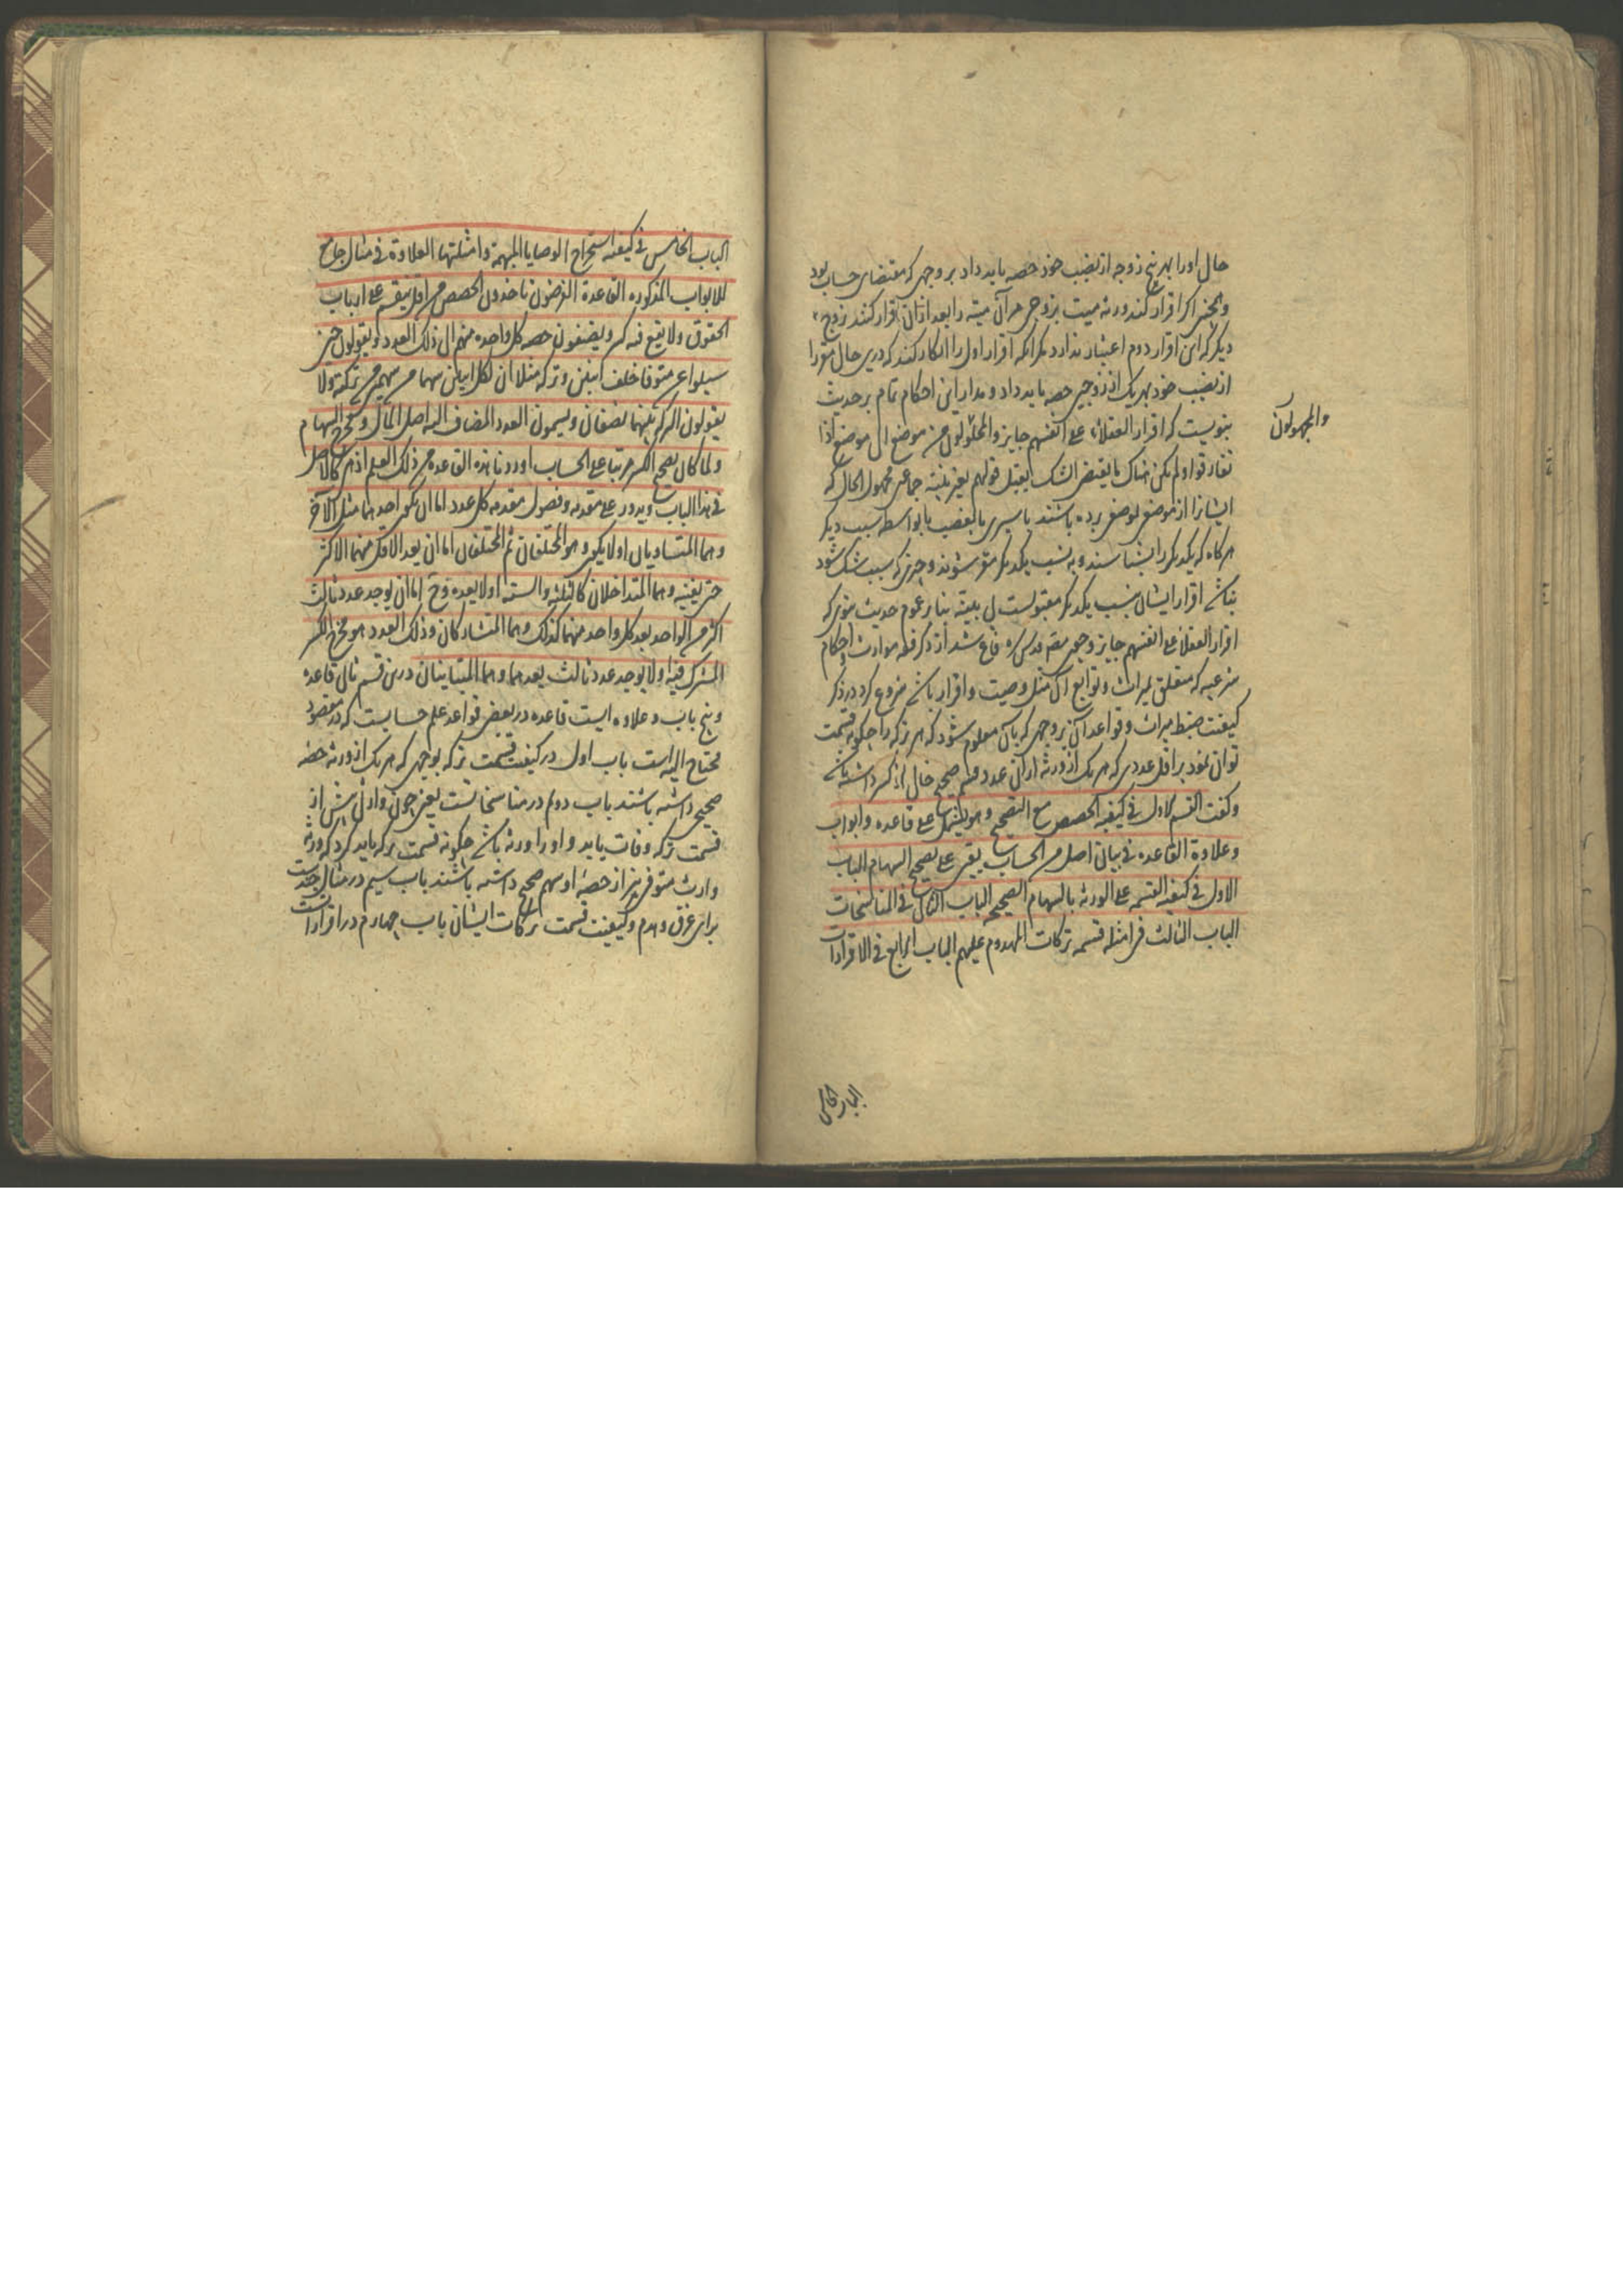 حال او را بهر پنج زوجه از نصیب خود حصه باید داد بر وجهی که مقتضای حساب بود
و همچنین اگر اقرار کنند ورثه میت بزوجی مر آن میته را بعد از آن اقرار کنند بزوج
دیگر که این اقرار دوم اعتبار ندارد مگر آنکه اقرار اول را انکار کنند که درین حال مقر را
از نصیب خود بهر یک از زوجین حصه باید داد و مدار این احکام تمام بر حدیث
نبویست که اقرار العقلاء علی انفسهم جایز و المحمولون من موضع الی موضع اذا
والمجهولون
تعارفوا و لم یکن هناک ما یقتضی الشک یقبل قولهم بغیر بینة جماعتی مجهول الحال که
ایشانرا از موضعی بموضعی برده باشند باسیری یا بغصب یا بواسطه سبب دیگر
هرگاه که یکدیگر را بشناسند و به نسب یکدیگر مقر شوند و چیزی که سبب شک شود
نباشد اقرار ایشان بنسب یکدیگر مقبولست بی بینه بنا بر عموم حدیث نبوی که
اقرار العقلاء علی انفسهم جایز و چون مصنف قدس سره فارغ شد از ذکر فقه مواریث و احکام
شرعیه که متعلق بمیراث و توابع آن مثل وصیت و اقرار باشد شروع کرد در ذکر
کیفیت ضبط میراث و قواعد آن بر وجهی که بآن معلوم شود که هر ترکه را چگونه قسمت
توان نمود بر اقل عددی که هر یک از ورثه از آن عدد قسم صحیح خالی از کسر داشته باشد
و گفت القسم الاول فی کیفیة الحصص مع التصحیح و هو یشتمل علی قاعده و ابواب
و علاوة القاعده فی بیان اصل من الحساب یبتنی علی تصحیح السهام الباب
الاول فی کیفیة القسمه علی الورثه بالسهام الصحیحه الباب الثانی فی المناسخات
الباب الثالث فی امثله قسمه ترکات المهدوم علیهم الباب الرابع فی الاقرارات
الباب الخامس
الباب الخامس فی کیفیة استخراج الوصایا المبهمة و امثلتها العلاوة فی مثال جامع
للابواب المذکوره القاعدة الفرضیون یاخذون الحصص من اقل ینقسم علی ارباب
الحقوق و لا یقع فیه کسر و یضیفون حصه کل واحده منهم الی ذلک العدد و یقولون حین
سیلوا عن متوفا خلف ابنین و ترکه مثلا ان لکل ابن سهما من سهمین من ترکته و لا
یقولون الترکه بینهما نصفان و یسمون العدد المضاف الیه اصل المال و مخرج السهام
و لما کان تصحیح الکسر مرتبا علی الحساب اوردنا هذه القاعده من ذلک العلم اذ هی کالاصل
فی هذا الباب و یدور علی مقدمه و فصول مقدمه کل عدد اما ان یکون احدهما مثل الآخر
و هما المتساویان او لا یکون و هو المختلفان ثم المختلفان اما ان یعد الاقل منهما الاکثر
حتی یفنیه و هما المتداخلان کالثلثه و الستة او لا یعده و ح اما ان یوجد عدد ثالث
اکثر من الواحد یعد کل واحد منهما کذلک و هما المتشارکان و ذلک العدد هو مخرج الکسر
المشترک فیه او لا یوجد عدد ثالث یعدهما و هما المتباینان درین قسم ثانی قاعده
و پنج باب و علاوه ایست قاعده در بعض قواعد علم حسابست که در مقصود
محتاج الیه است باب اول در کیفیت قسمت ترکه بوجهی که هر یک از ورثه حصه
صحیح داشته باشند باب دوم در مناسخاتست یعنی چون وارثی پیش از
قسمت ترکه وفات یابد و او را ورثه باشد چگونه قسمت ترکه باید کرد که ورثه
وارث متوفی نیز از حصه او سهم صحیح داشته باشند باب سیم در مثالی چندست
برای غرق و هدم و کیفیت قسمت ترکات ایشان باب چهارم در اقراراتست